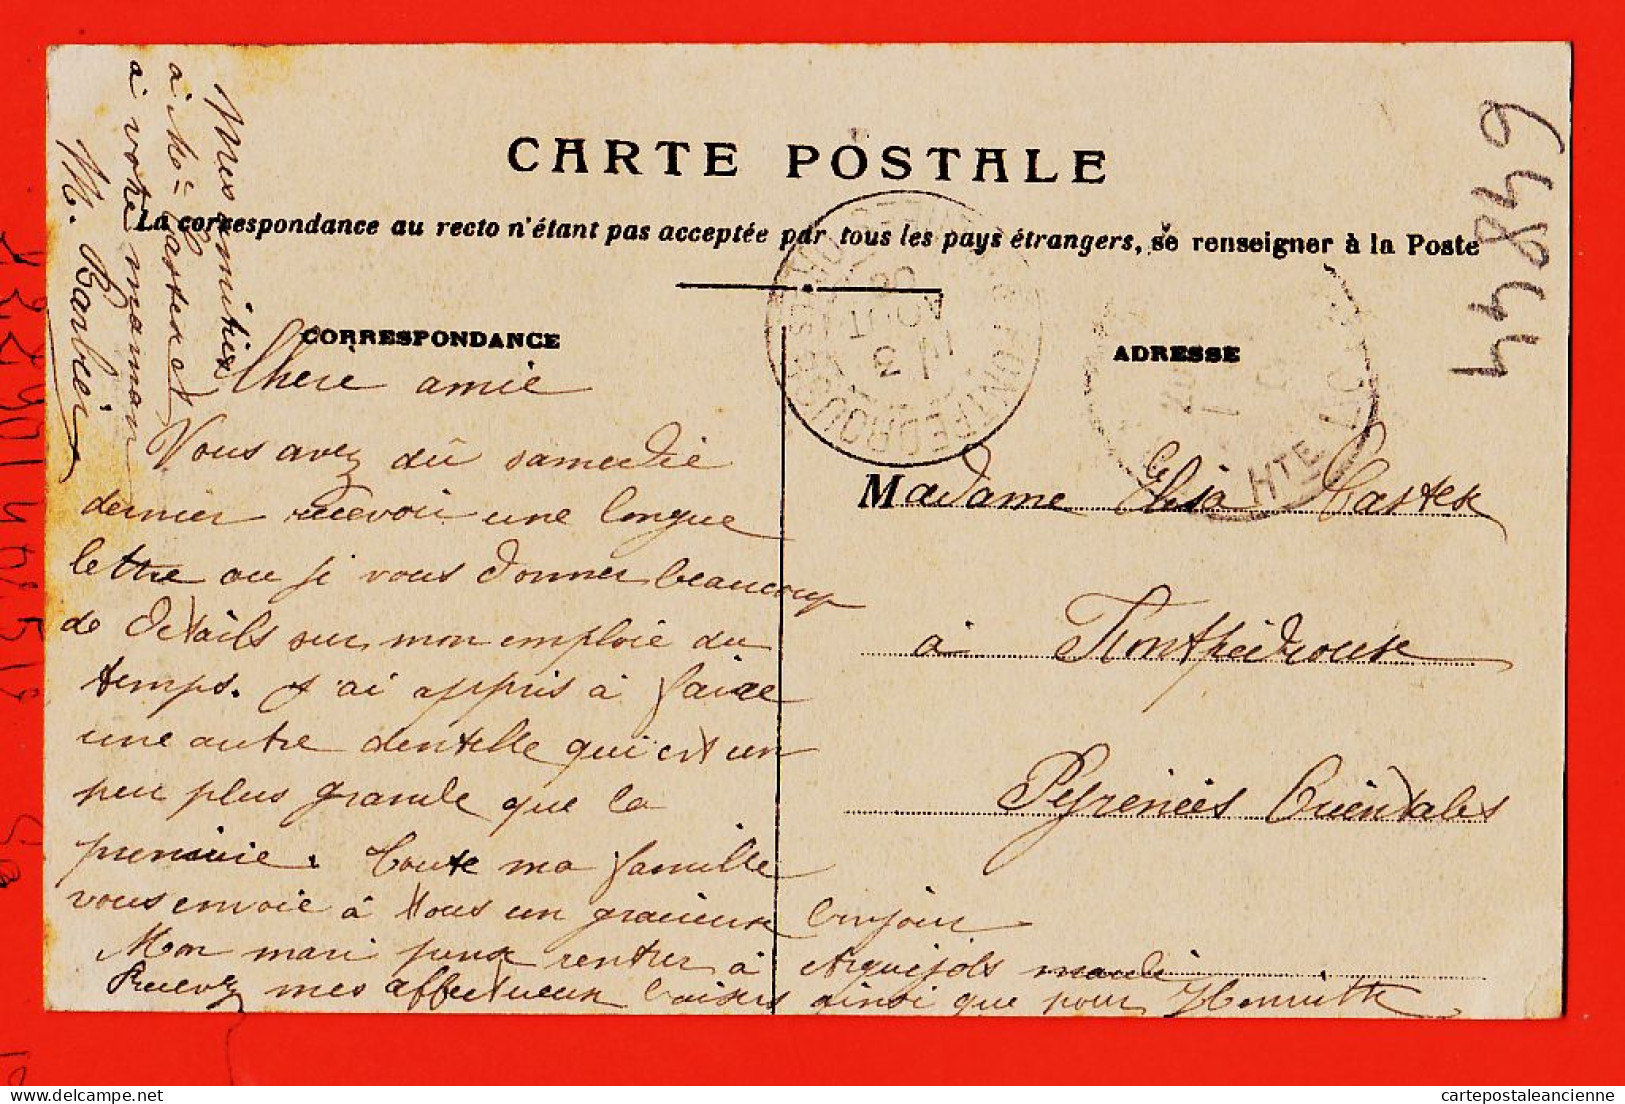 CARTE POSTALE
La correspondance au recto n'étant pas acceptée par tous les pays étrangers, se renseigner à la Poste
CORRESPONDANCE
ADRESSE
Chère amie
Vous avez dû samedie
dernier recevoir une longue
lettre ou je vous donner beaucoup
de détails sur mon emploie du
temps. J'ai appris à faire
une autre dentelle qui est un
peu plus grande que la
premiere. Toute ma famille
vous envoie à tous un gracieux bonjour
Mon mari peux rentrer à Arguijols mardi
Recevez mes affectueux baisers ainsi que pour Henriette
Mes amitiés
à Mr Castex et
à votre maman
M. Barbier
Madame Elisa Castex
à Fontpédrouse
Pyrénées Orientales
64849
44
AOUT
HTE
cartepostaleancienne